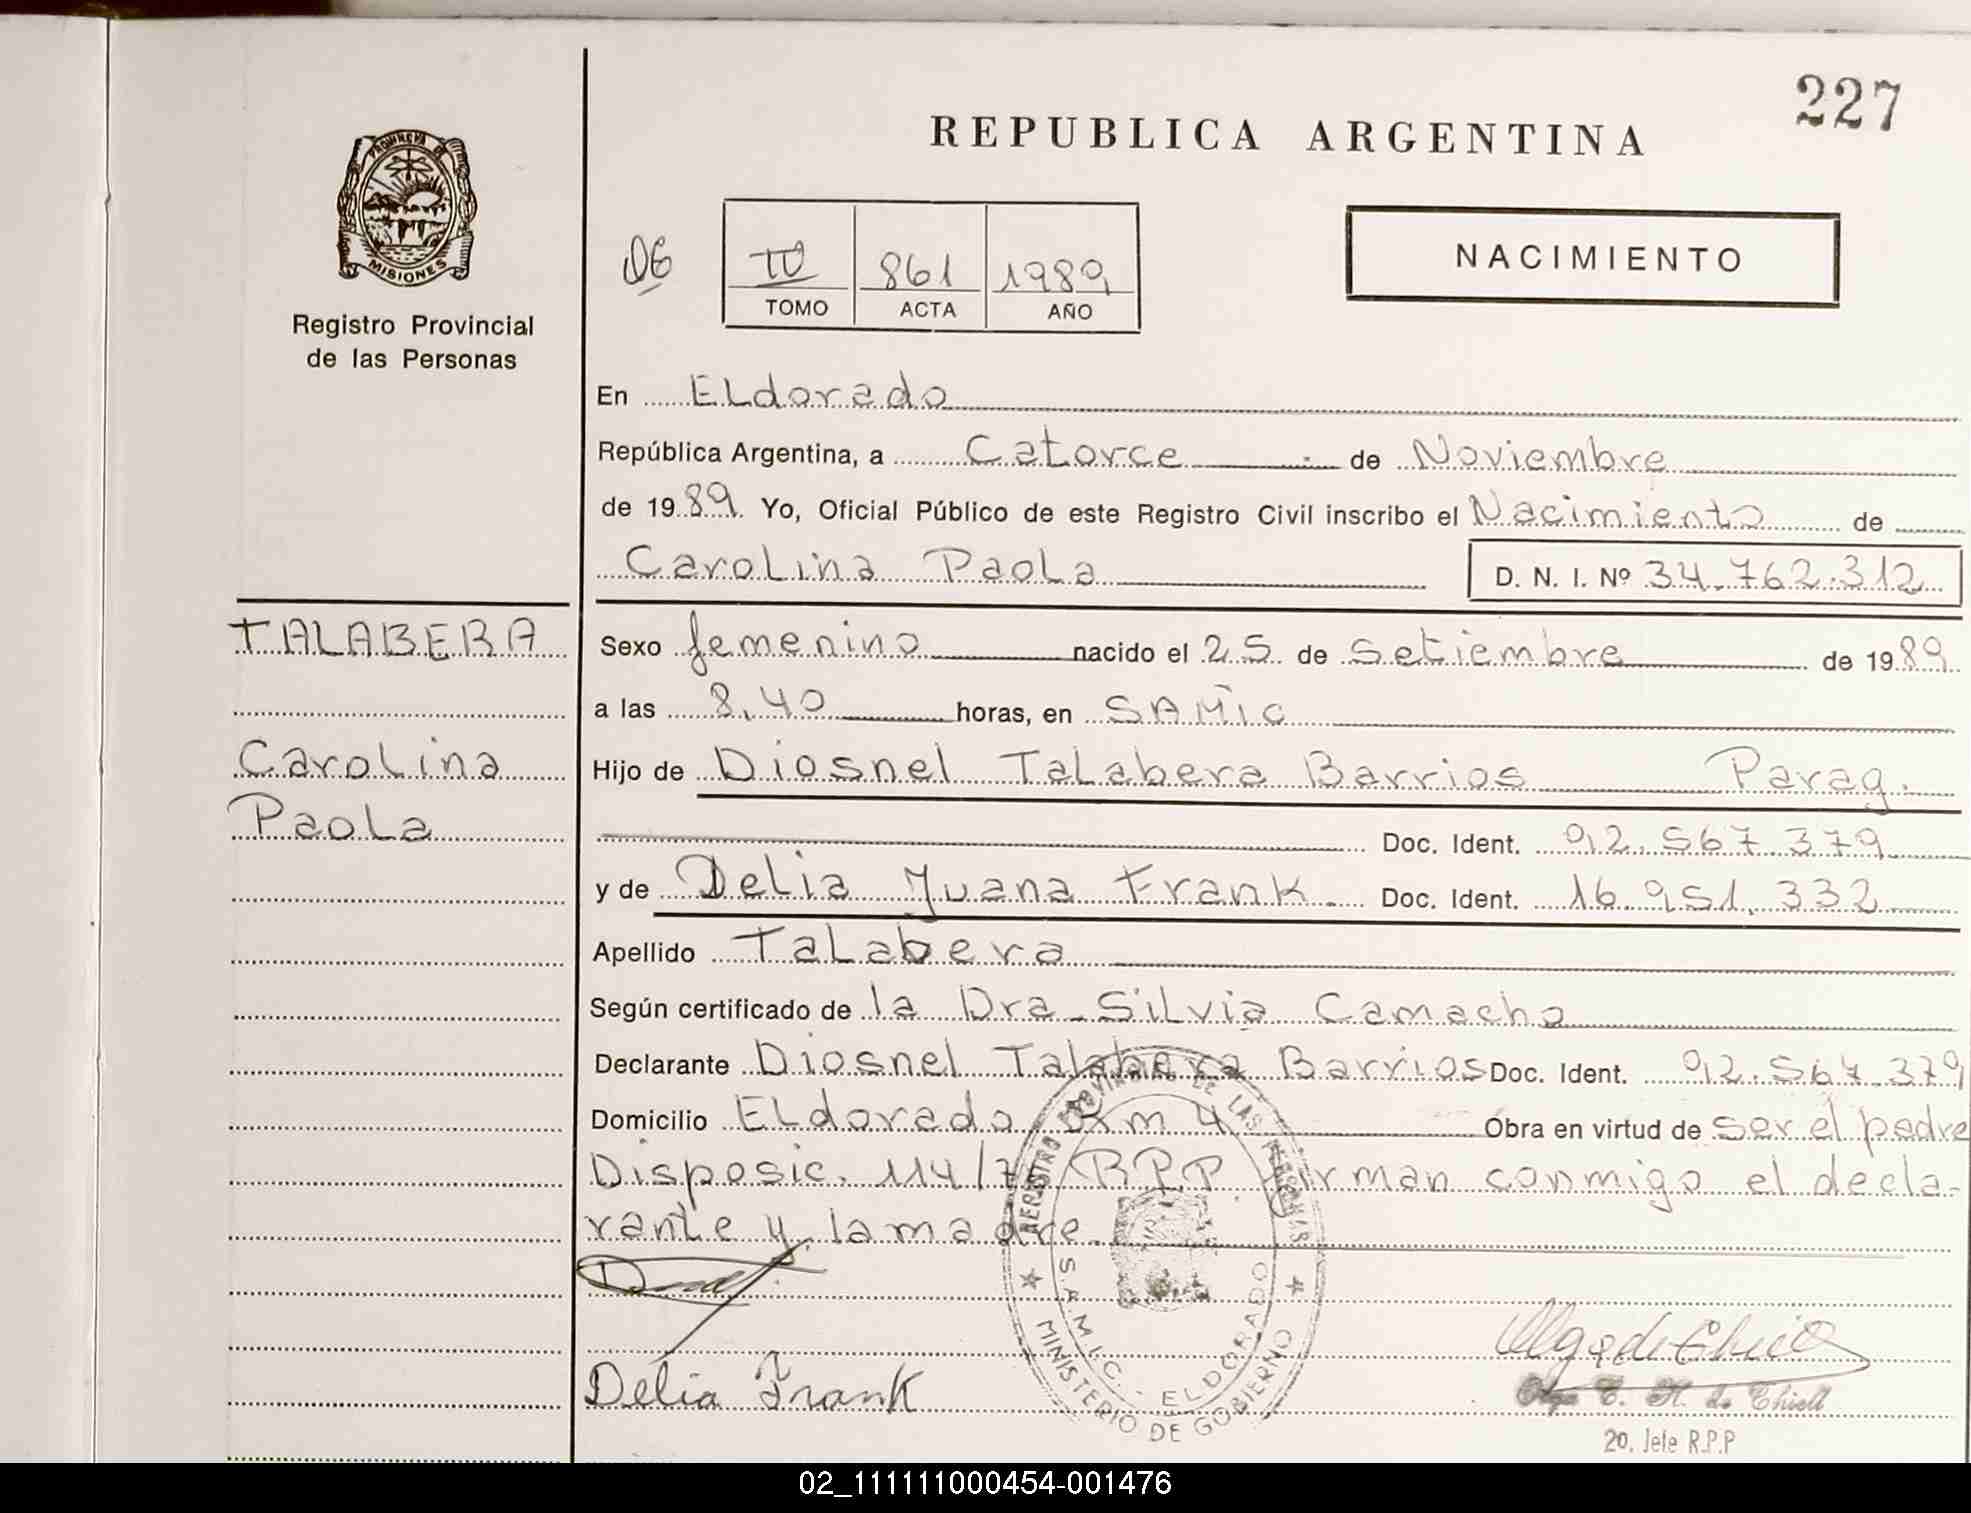 227
REPUBLICA ARGENTINA
PROVINCIA DE
MISIONES
Registro Provincial
de las Personas
06
IV 861 1989
TOMO ACTA AÑO
NACIMIENTO
En ELdorado
República Argentina, a Catorce de Noviembre
de 1989 Yo, Oficial Público de este Registro Civil inscribo el Nacimiento de
Carolina Paola D. N. I. Nº 34.762.312
TALABERA
Carolina
Paola
Sexo femenino nacido el 25 de Setiembre de 1989
a las 8,40 horas, en SAMIC
Hijo de Diosnel Talabera Barrios Parag.
Doc. Ident. 92.567.379
y de Delia Juana Frank. Doc. Ident. 16.951.332
Apellido Talabera
Según certificado de la Dra. Silvia Camacho
Declarante Diosnel Talabera Barrios Doc. Ident. 92.567.379
Domicilio ELdorado Km 4 Obra en virtud de ser el padre
Disposic. 114/7 RPP. Firman conmigo el decla-
rante y la madre.
REGISTRO PROVINCIAL DE LAS PERSONAS
S.A.M.I.C. - ELDORADO
MINISTERIO DE GOBIERNO
Delia Frank
Olga de Chiell
Olga C. H. de Chiell
20. Jefe R.P.P
02_111111000454-001476